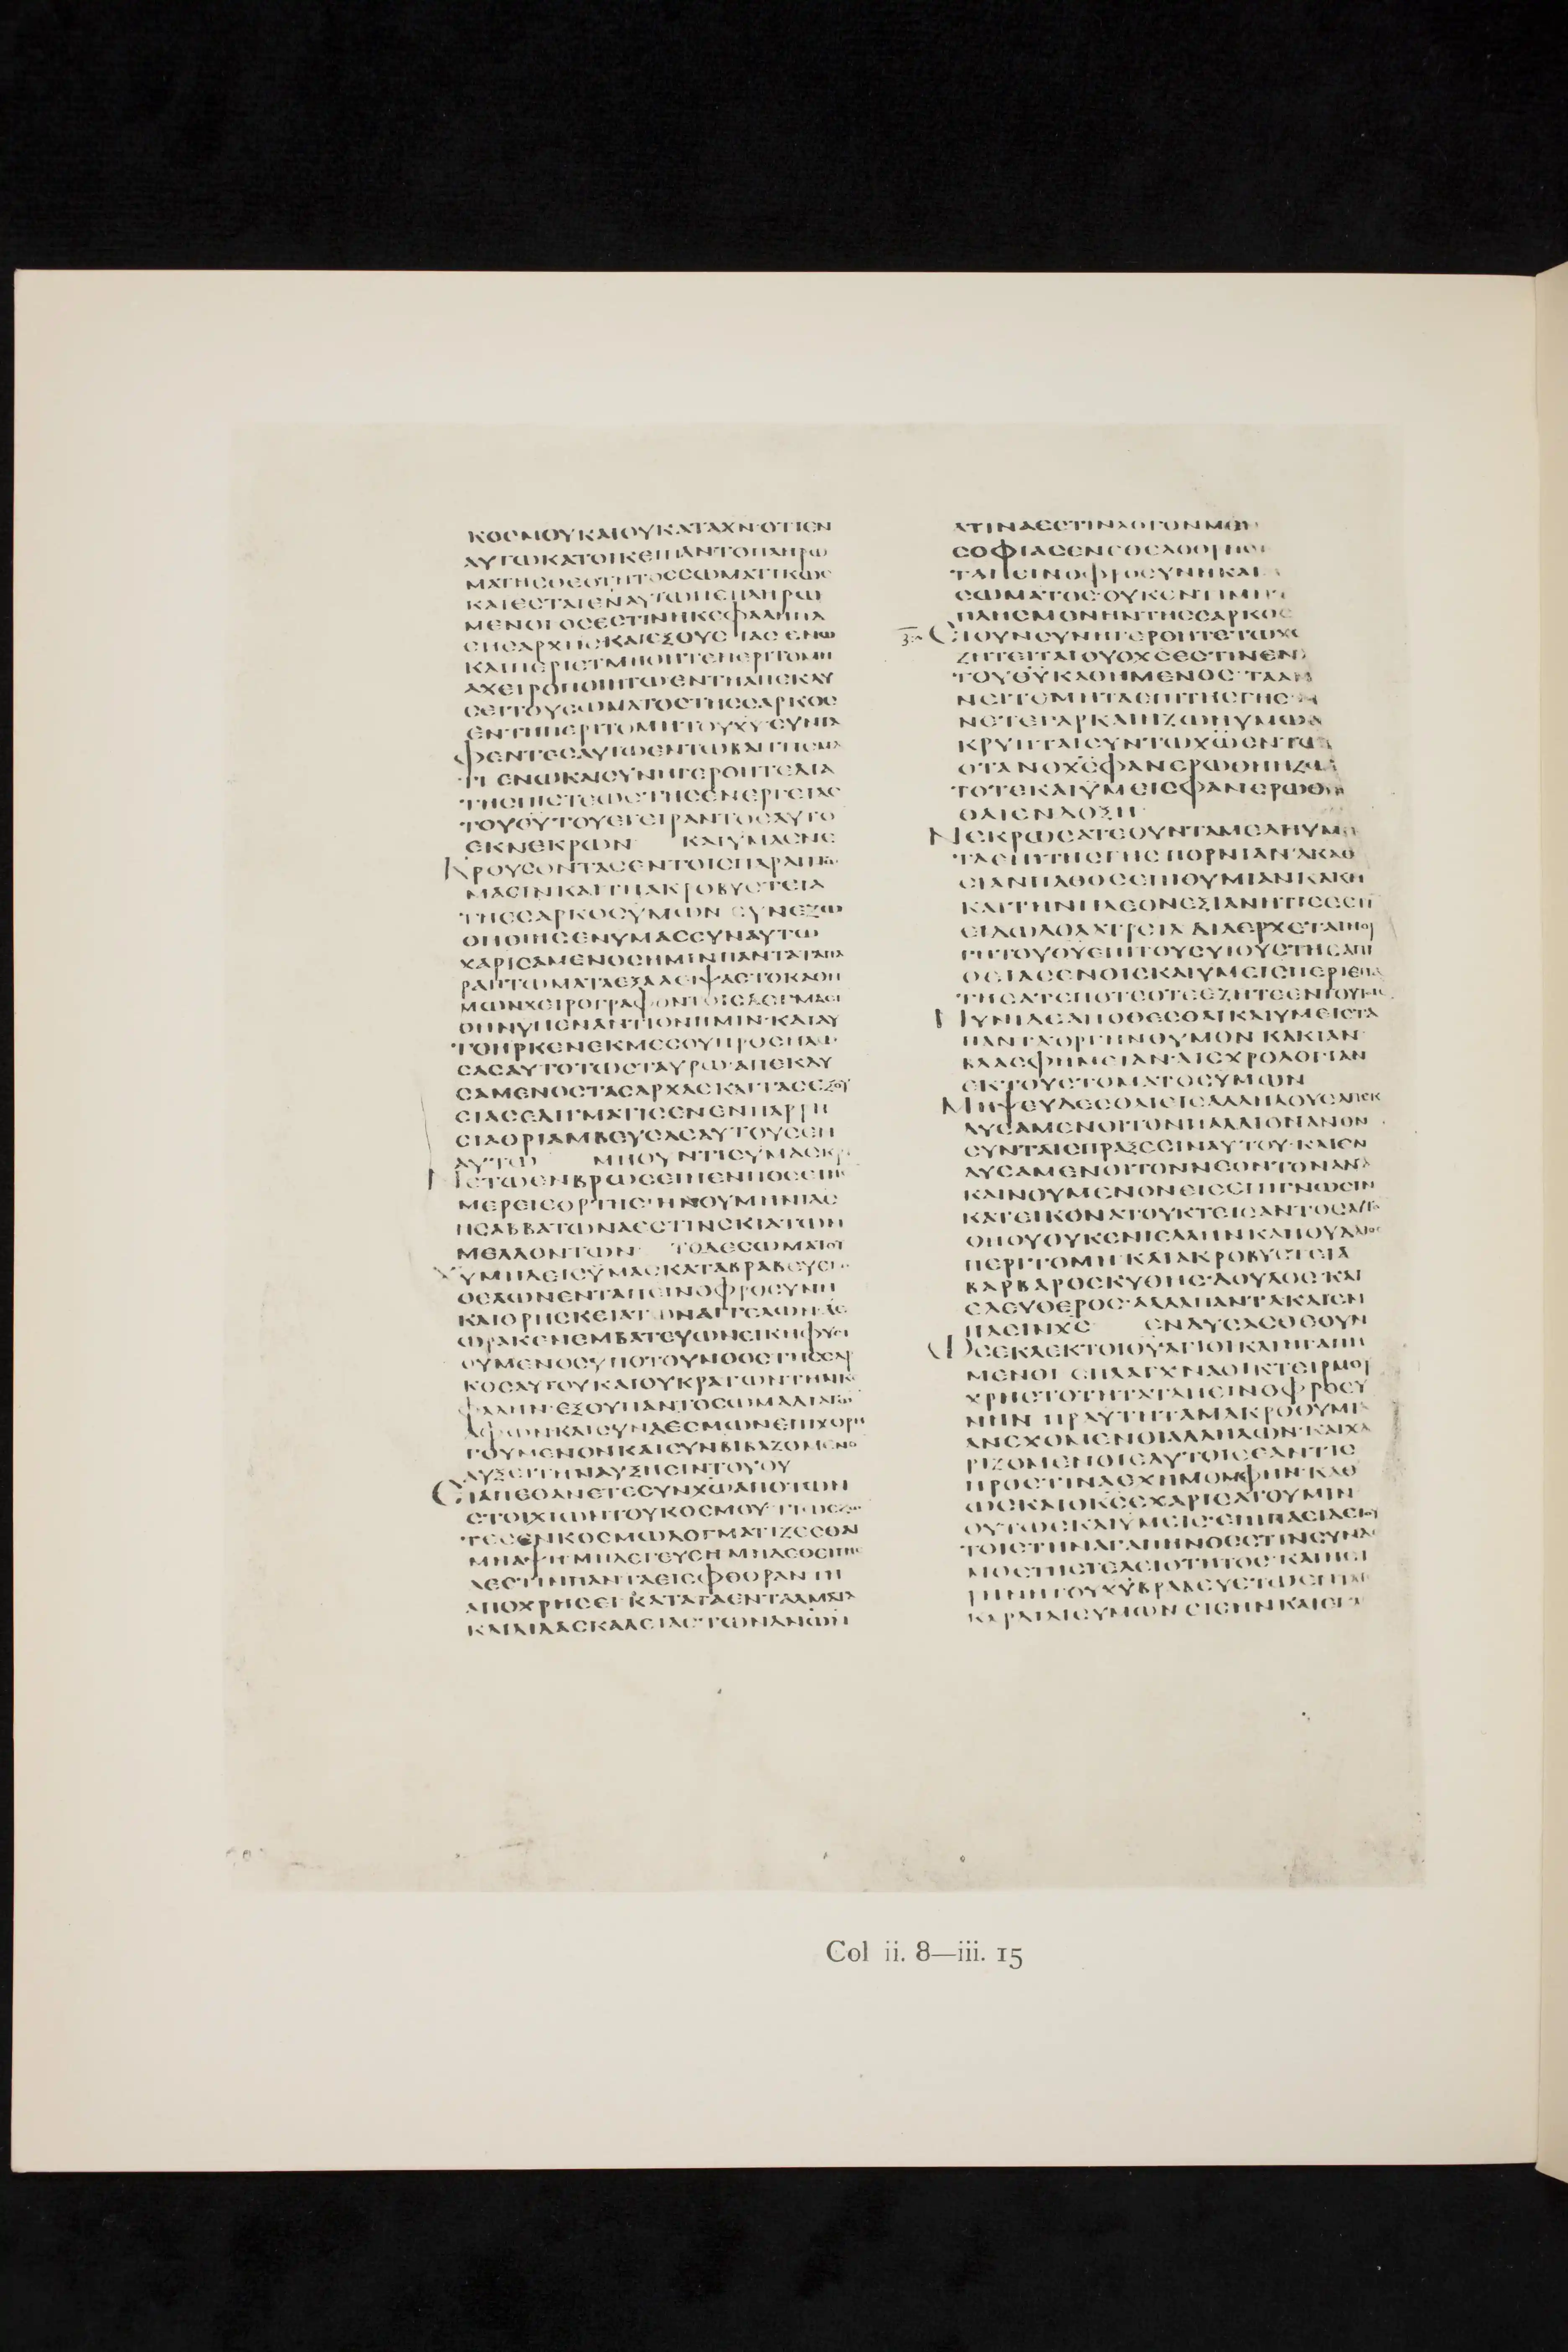 ΚΟCΜΟΥΚΑΙΟΥΚΑΤΑΧΝ·ΟΤΙΕΝ
ΑΥΤΩΚΑΤΟΙΚΕΙΠΑΝΤΟΠΛΗΡΩ
ΜΑΤΗCΘΕΟΤΗΤΟCCΩΜΑΤΙΚΩC
ΚΑΙΕCΤΑΙΕΝΑΥΤΩΠΕΠΛΗΡΩ
ΜΕΝΟΙΟCΕCΤΙΝΗΚΕΦΑΛΗΠΑ
CΗCΑΡΧΗCΚΑΙΕΞΟΥCΙΑCΕΝΩ
ΚΑΙΠΕΡΙΕΤΜΗΘΗΤΕΠΕΡΙΤΟΜΗ
ΑΧΕΙΡΟΠΟΙΗΤΩΕΝΤΗΑΠΕΚΔΥ
CΕΙΤΟΥCΩΜΑΤΟCΤΗCCΑΡΚΟC
ΕΝΤΗΠΕΡΙΤΟΜΗΤΟΥΧΥCΥΝΤΑ
ΦΕΝΤΕCΑΥΤΩΕΝΤΩΒΑΠΤΙCΜΑ
ΤΙΕΝΩΚΑΙCΥΝΗΓΕΡΘΗΤΕΔΙΑ
ΤΗCΠΙCΤΕΩCΤΗCΕΝΕΡΓΕΙΑC
ΤΟΥΘΥΤΟΥΕΓΕΙΡΑΝΤΟCΑΥΤΟ
ΕΚΝΕΚΡΩΝ ΚΑΙΥΜΑCΝΕ
ΚΡΟΥCΟΝΤΑCΕΝΤΟΙCΠΑΡΑΠΤΩ
ΜΑCΙΝΚΑΙΤΗΑΚΡΟΒΥCΤΕΙΑ
ΤΗCCΑΡΚΟCΥΜΩΝ CΥΝΕΖΩ
ΟΠΟΙΗCΕΝΥΜΑCCΥΝΑΥΤΩ
ΧΑΡΙCΑΜΕΝΟCΗΜΙΝΠΑΝΤΑΤΑΠΑ
ΡΑΠΤΩΜΑΤΑΕΞΑΛΕΙΨΑCΤΟΚΑΘΗ
ΜΩΝΧΕΙΡΟΓΡΑΦΟΝΤΟΙCΔΟΓΜΑCΙ
ΟΗΝΥΠΕΝΑΝΤΙΟΝΗΜΙΝ·ΚΑΙΑΥ
ΤΟΗΡΚΕΝΕΚΜΕCΟΥΠΡΟCΗΛΩ
CΑCΑΥΤΟΤΩCΤΑΥΡΩ·ΑΠΕΚΔΥ
CΑΜΕΝΟCΤΑCΑΡΧΑCΚΑΙΤΑCΕΞΟΥ
CΙΑCΕΔΙΓΜΑΤΙCΕΝΕΝΠΑΡΡΗ
CΙΑΘΡΙΑΜΒΕΥCΑCΑΥΤΟΥCΕΝ
ΑΥΤΩ ΜΗΟΥΝΤΙCΥΜΑCΚΡΙ
ΝΕΤΩΕΝΒΡΩCΕΙΗΕΝΠΟCΕΙΗΕ
ΜΕΡΕΙΕΟΡΤΗC·ΗΝΟΥΜΗΝΙΑC
ΗCΑΒΒΑΤΩΝΑΕCΤΙΝCΚΙΑΤΩΝ
ΜΕΛΛΟΝΤΩΝ ΤΟΔΕCΩΜΑΤΟΥ
ΧΥΜΗΔΕΙCΥΜΑCΚΑΤΑΒΡΑΒΕΥΕΤΩ
ΘΕΛΩΝΕΝΤΑΠΕΙΝΟΦΡΟCΥΝΗ
ΚΑΙΘΡΗCΚΕΙΑΤΩΝΑΓΓΕΛΩΝ·ΑΕ
ΩΡΑΚΕΝΕΜΒΑΤΕΥΩΝΕΙΚΗΦΥCΙ
ΟΥΜΕΝΟCΥΠΟΤΟΥΝΟΟCΤΗCCΑΡ
ΚΟCΑΥΤΟΥΚΑΙΟΥΚΡΑΤΩΝΤΗΝΚΕ
ΦΑΛΗΝ·ΕΞΟΥΠΑΝΤΟCΩΜΑΔΙΑΤΩ
ΑΦΩΝΚΑΙCΥΝΔΕCΜΩΝΕΠΙΧΟΡΗ
ΓΟΥΜΕΝΟΝΚΑΙCΥΝΒΙΒΑΖΟΜΕΝΟ
ΑΥΞΕΙΤΗΝΑΥΞΗCΙΝΤΟΥΘΥ
ΕΙΑΠΕΘΑΝΕΤΕCΥΝΧΩΑΠΟΤΩΝ
CΤΟΙΧΙΩΝΤΟΥΚΟCΜΟΥ·ΤΙΩCΖΩ
ΤΕCΕΝΚΟCΜΩΔΟΓΜΑΤΙΖΕCΘΑΙ
ΜΗΑΨΗΜΗΔΕΓΕΥCΗΜΗΔΕΘΙΓΗC
ΑΕCΤΙΝΠΑΝΤΑΕΙCΦΘΟΡΑΝΤΗ
ΑΠΟΧΡΗCΕΙ·ΚΑΤΑΤΑΕΝΤΑΛΜΑΤΑ
ΚΑΙΔΙΔΑCΚΑΛΕΙΑCΤΩΝΑΝΩΝ
ΑΤΙΝΑΕCΤΙΝΛΟΓΟΝΜΕΝ
CΟΦΙΑCΕΝΕΘΕΛΟΘΡΗCΚΙ
ΤΑΠΕΙΝΟΦΡΟCΥΝΗΚΑΙ
CΩΜΑΤΟC·ΟΥΚΕΝΤΙΜΗΤΙ
ΠΛΗCΜΟΝΗΝΤΗCCΑΡΚΟC
ΕΙΟΥΝCΥΝΗΓΕΡΘΗΤΕΤΩΧΩ
ΖΗΤΕΙΤΑΙΟΥΟΧCΕCΤΙΝΕΝ
ΤΟΥΘΥΚΑΘΗΜΕΝΟC·ΤΑΑΝ
ΝΕΙΤΕΜΗΤΑΕΠΙΤΗCΓΗC·Α
ΝΕΤΕΓΑΡΚΑΙΗΖΩΗΥΜΩΝ
ΚΡΥΠΤΑΙCΥΝΤΩΧΩΕΝΤΩ
ΟΤΑΝΟΧCΦΑΝΕΡΩΘΗΗΖΩ
ΤΟΤΕΚΑΙΥΜΕΙCΦΑΝΕΡΩΘΗ
ΘΑΙΕΝΔΟΞΗ
ΝΕΚΡΩCΑΤΕΟΥΝΤΑΜΕΛΗΥΜΩ
ΤΑΕΠΙΤΗCΓΗC·ΠΟΡΝΙΑΝ·ΑΚΑΘ
CΙΑΝΠΑΘΟCΕΠΙΘΥΜΙΑΝΚΑΚΗ
ΚΑΙΤΗΝΠΛΕΟΝΕΞΙΑΝΗΤΙCΕCΤΙ
ΕΙΔΩΛΟΛΑΤΡΕΙΑΔΙΑΕΡΧΕΤΑΙΗΟΡ
ΓΗΤΟΥΘΥΕΠΙΤΟΥCΥΙΟΥCΤΗCΑΠΙ
ΘΕΙΑCΕΝΟΙCΚΑΙΥΜΕΙCΠΕΡΙΕΠΑ
ΤΗCΑΤΕΠΟΤΕΟΤΕΕΖΗΤΕΕΝΤΟΥΤΟΙC
ΝΥΝΙΔΕΑΠΟΘΕCΘΑΙΚΑΙΥΜΕΙCΤΑ
ΠΑΝΤΑΟΡΓΗΝΘΥΜΟΝ·ΚΑΚΙΑΝ·
ΒΛΑCΦΗΜΕΙΑΝ·ΑΙCΧΡΟΛΟΓΙΑΝ
ΕΚΤΟΥCΤΟΜΑΤΟCΥΜΩΝ
ΜΗΨΕΥΔΕCΘΑΙΕΙCΑΛΛΗΛΟΥCΑΠΕΚ
ΔΥCΑΜΕΝΟΙΤΟΝΠΑΛΑΙΟΝΑΝΟΝ
CΥΝΤΑΙCΠΡΑΞΕCΙΝΑΥΤΟΥ·ΚΑΙΕΝ
ΔΥCΑΜΕΝΟΙΤΟΝΝΕΟΝΤΟΝΑΝΑ
ΚΑΙΝΟΥΜΕΝΟΝΕΙCΕΠΙΓΝΩCΙΝ
ΚΑΤΕΙΚΟΝΑΤΟΥΚΤΕΙCΑΝΤΟCΑΥΤΟ
ΟΠΟΥΟΥΚΕΝΙΕΛΛΗΝΚΑΙΙΟΥΔΑΙΟC
ΠΕΡΙΤΟΜΗ·ΚΑΙΑΚΡΟΒΥCΤΕΙΑ
ΒΑΡΒΑΡΟCCΚΥΘΗC·ΔΟΥΛΟC·ΚΑΙ
ΕΛΕΥΘΕΡΟC·ΑΛΛΑΠΑΝΤΑΚΑΙΕΝ
ΠΑCΙΝΧC ΕΝΔΥCΑCΘΕΟΥΝ
ΩCΕΚΛΕΚΤΟΙΘΥΑΓΙΟΙΚΑΙΗΓΑΠΗ
ΜΕΝΟΙ CΠΛΑΓΧΝΑΟΙΚΤΕΙΡΜΟΥ
ΧΡΗCΤΟΤΗΤΑΤΑΠΕΙΝΟΦΡΟCΥ
ΝΗΝ ΠΡΑΥΤΗΤΑΜΑΚΡΟΘΥΜΙ
ΑΝΕΧΟΜΕΝΟΙΑΛΛΗΛΩΝ·ΚΑΙΧΑ
ΡΙΖΟΜΕΝΟΙΕΑΥΤΟΙCΕΑΝΤΙC
ΠΡΟCΤΙΝΑΕΧΗΜΟΜΦΗΝ·ΚΑΘ
ΩCΚΑΙΟΚCΕΧΑΡΙCΑΤΟΥΜΙΝ
ΟΥΤΩCΚΑΙΥΜΕΙC·ΕΠΙΠΑCΙΔΕΤΟΥ
ΤΟΙCΤΗΝΑΓΑΠΗΝΟΕCΤΙΝCΥΝΔΕ
ΜΟCΤΗCΤΕΛΕΙΟΤΗΤΟC·ΚΑΙΗΕΙ
ΡΗΝΗΤΟΥΧΥΒΡΑΒΕΥΕΤΩΕΝΤΑΙ
ΚΑΡΔΙΑΙCΥΜΩΝΕΙCΗΝΚΑΙΕΚΛ
Col ii. 8—iii. 15